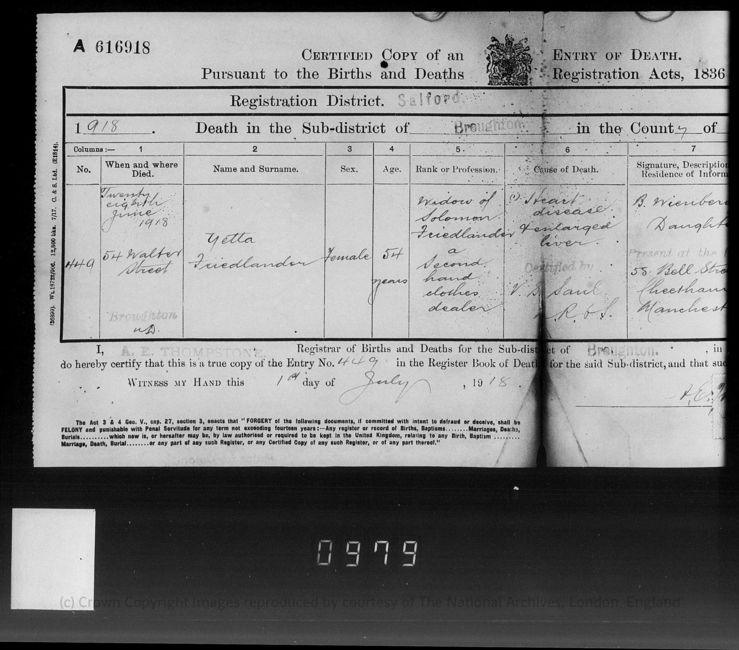 A 616918
CERTIFIED COPY OF AN ENTRY OF DEATH.
Pursuant to the Births and Deaths Registration Acts, 1836
Registration District. Salford.
1918. Death in the Sub-district of Broughton in the County of
Columns:— 1 2 3 4 5 6 7
No. When and where Died. Name and Surname. Sex. Age. Rank or Profession. Cause of Death. Signature, Description Residence of Inform
449
Twenty
eighth
June
1918
54 Walter
Street
Broughton
Yetta
Friedlander
Female
54
years
Widow of
Solomon
Friedlander
a
Second
hand
clothes
dealer
(1) Heart
disease
& enlarged
liver.
Certified by
Saul
Daught
Present at the
58 Bell Stre
Cheetham
Manchest
I, A. E. THOMPSTONE, Registrar of Births and Deaths for the Sub-district of Broughton. , in
do hereby certify that this is a true copy of the Entry No. 449 in the Register Book of Deaths for the said Sub-district, and that suc
WITNESS MY HAND this 1st day of July , 1918.
The Act 3 & 4 Geo. V., cap. 27, section 3, enacts that "FORGERY of the following documents, if committed with intent to defraud or deceive, shall be
FELONY and punishable with Penal Servitude for any term not exceeding fourteen years:—Any register or record of Births, Baptisms........Marriages, Deaths,
Burials..........which now is, or hereafter may be, by law authorised or required to be kept in the United Kingdom, relating to any Birth, Baptism .........
Marriage, Death, Burial........or any part of any such Register, or any Certified Copy of any such Register, or of any part thereof."
0979
(c) Crown Copyright Images reproduced by courtesy of The National Archives, London, England